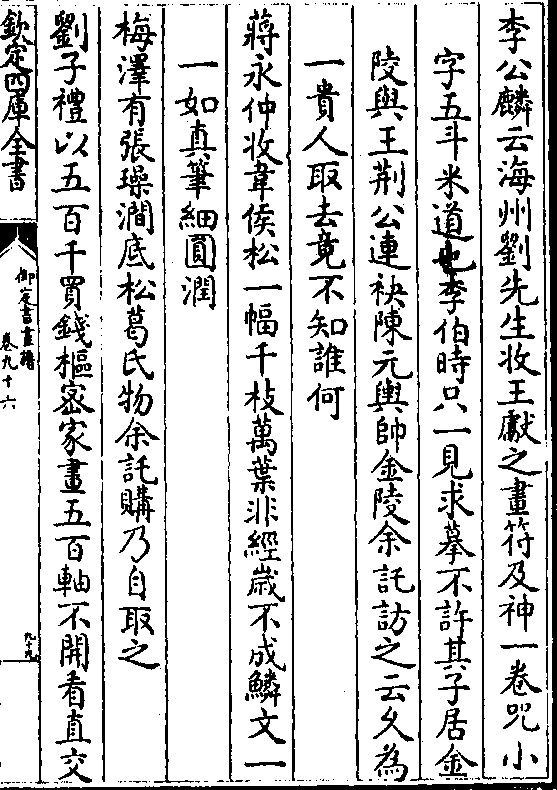 李公麟云海州劉先生收王獻之畫符及神一卷咒小
字五斗米道也李伯時只一見求摹不許其子居金
陵與王荆公連袂陳元輿帥金陵余託訪之云久為
一貴人取去竟不知誰何
蔣永仲收韋侯松一幅千枝萬葉非經歲不成鱗文一
一如真筆細圓潤
梅澤有張璪澗底松葛氏物余託購乃自取之
劉子禮以五百千買錢樞密家畫五百軸不開看直交
欽定四庫全書
御定書畫譜
卷九十六
九十九